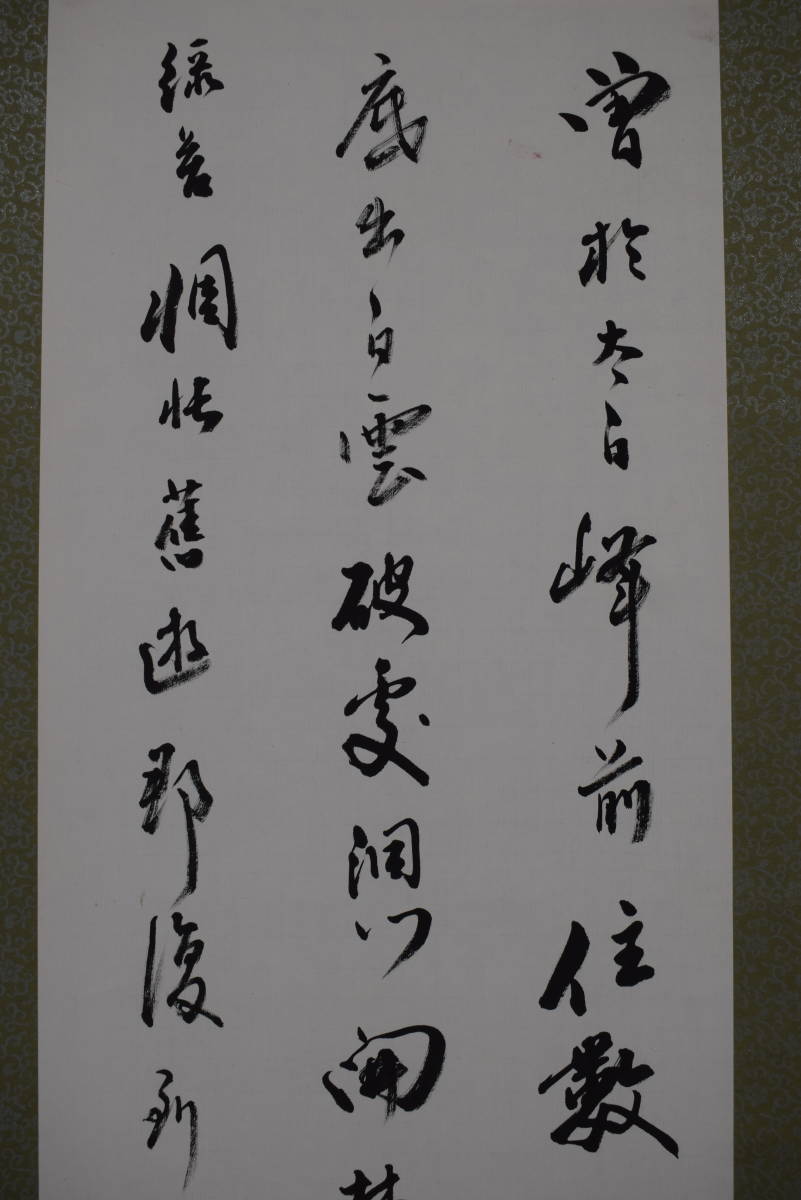 曾於太白峰前住數
底出白雲破處洞門開
綠苔惆悵舊遊那復到